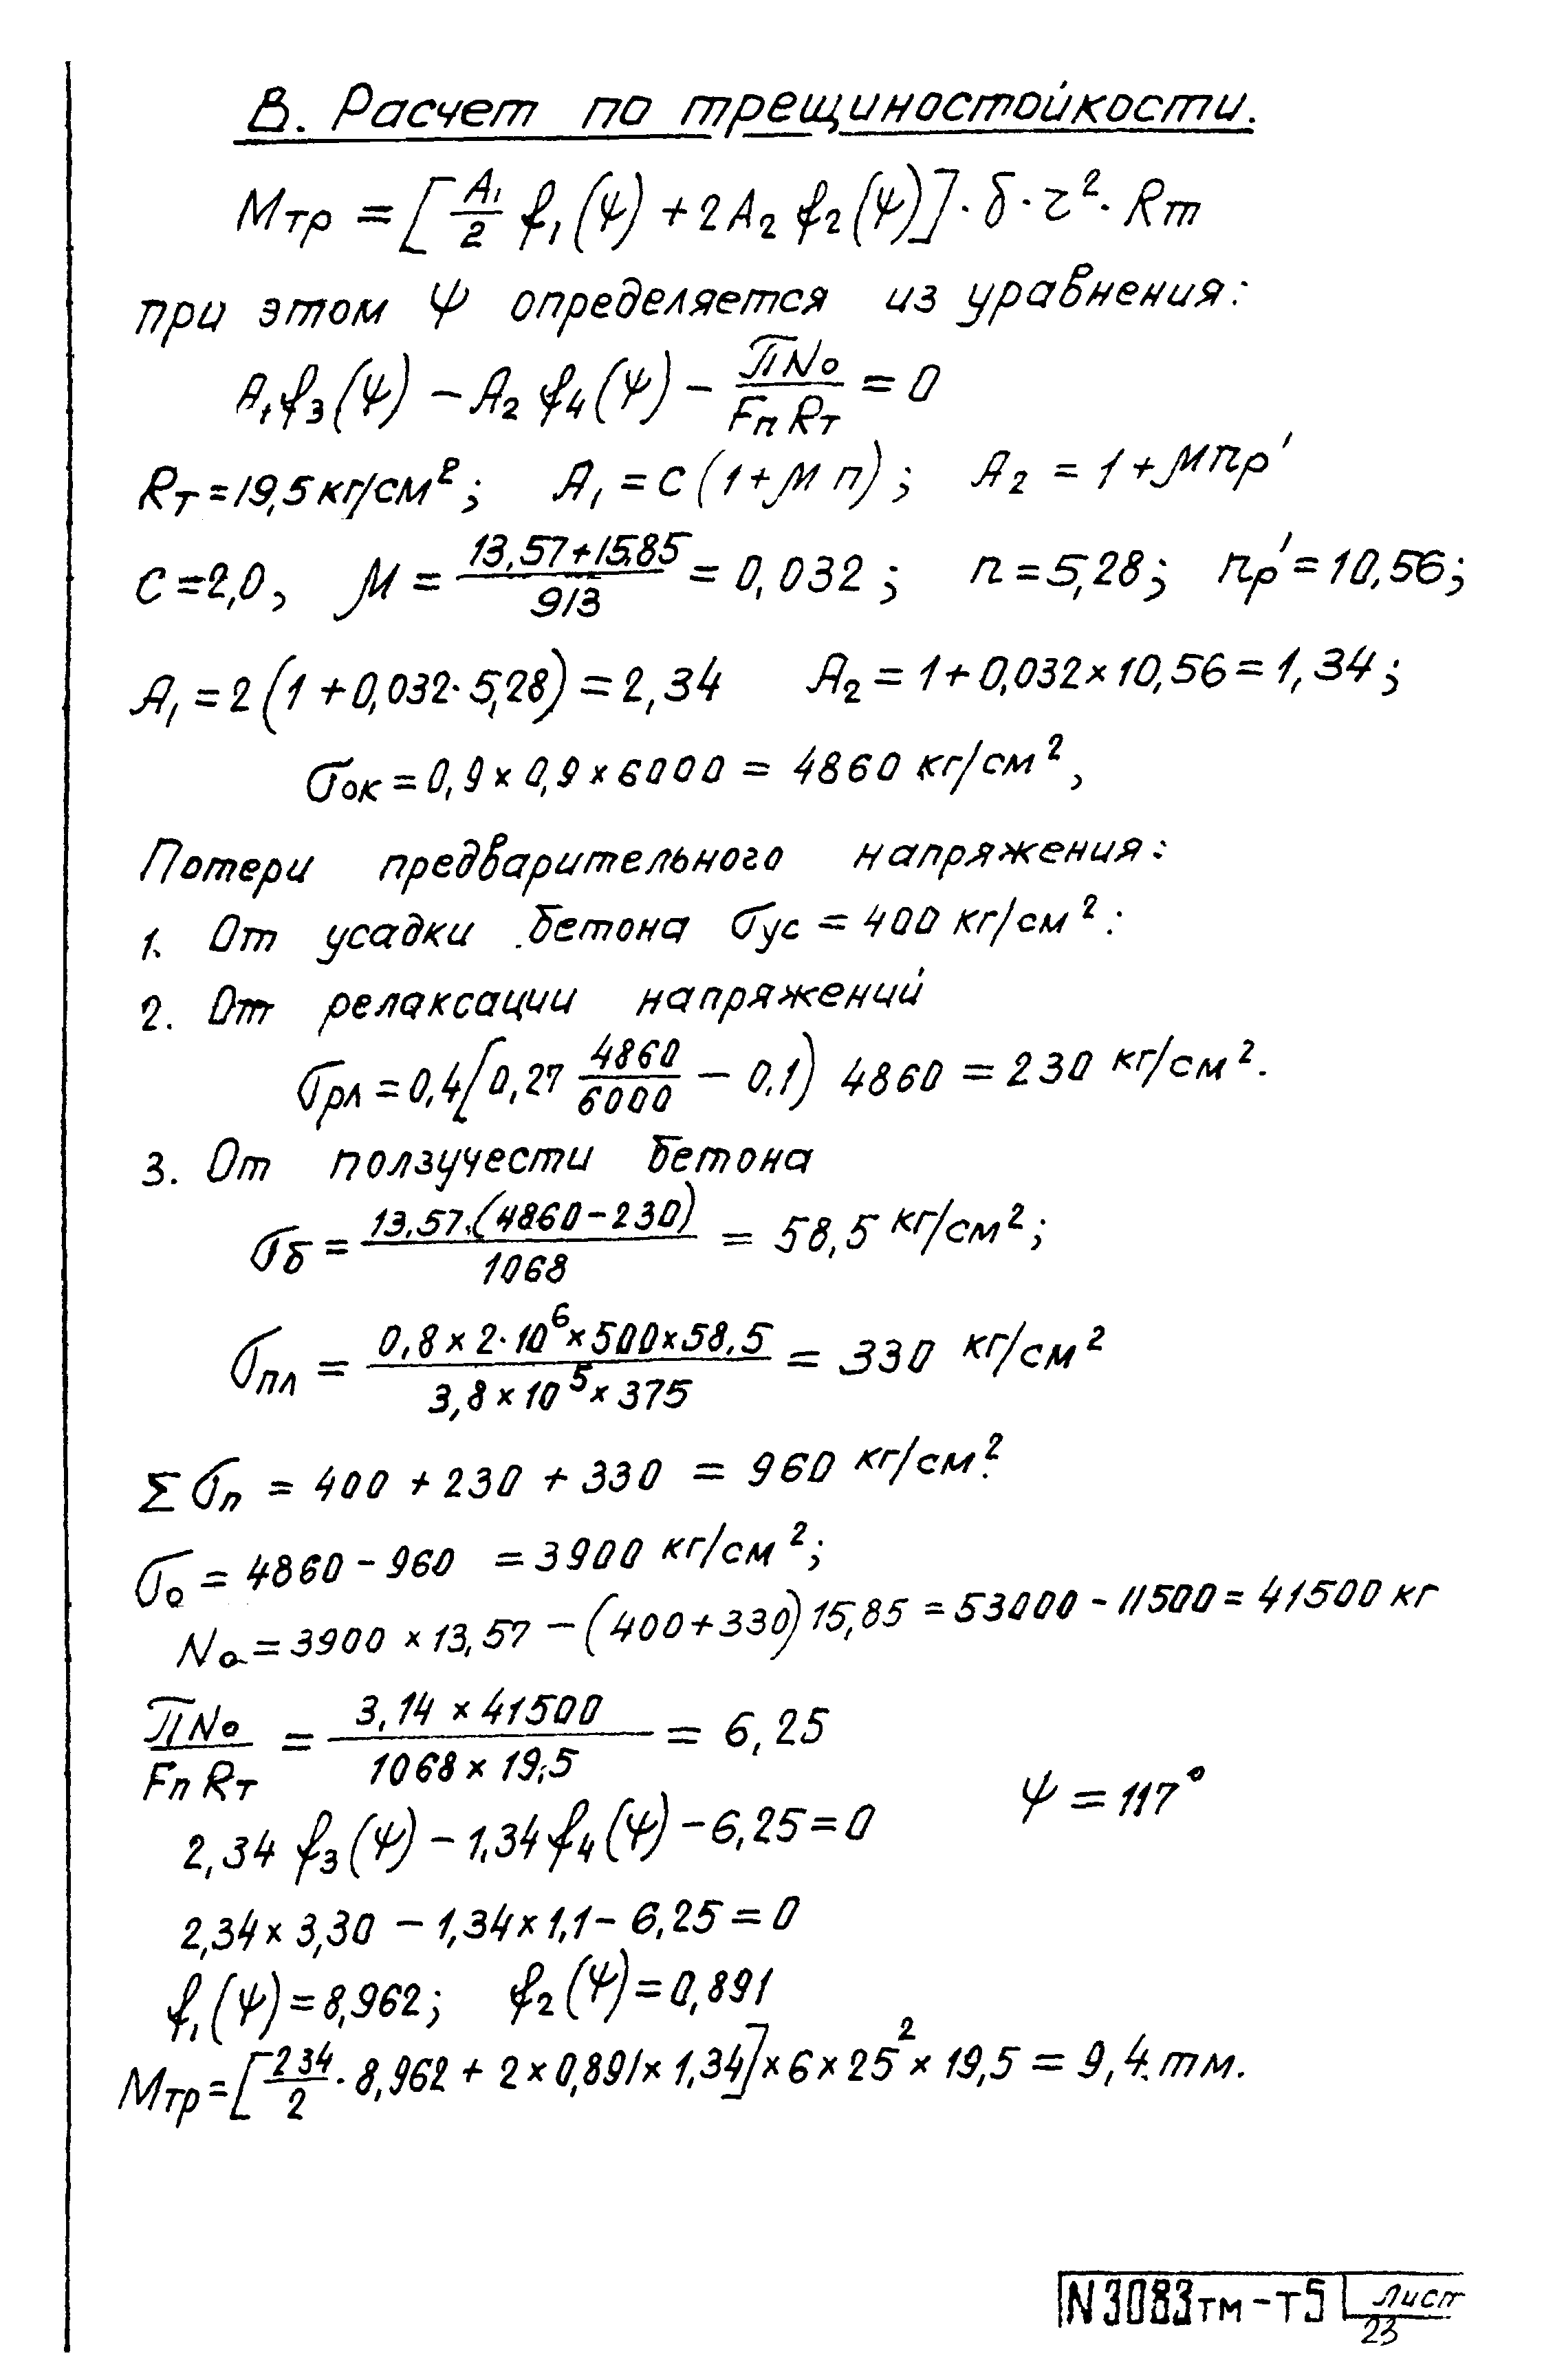 В. Расчет по трещиностойкости.
Mтр = [A₁/2 f₁(ψ) + 2A₂ f₂(ψ)]·δ·r²·Rт
при этом ψ определяется из уравнения:
A₁f₃(ψ) – A₂ f₄(ψ) – πN₀/FпRт = 0
Rт = 19,5 кг/см²; A₁ = c(1+μ п); A₂ = 1+μпр'
c = 2,0, μ = 13,57+15,85/913 = 0,032; п = 5,28; пр' = 10,56;
A₁ = 2(1+0,032·5,28) = 2,34 A₂ = 1+0,032×10,56 = 1,34;
σок = 0,9 × 0,9 × 6000 = 4860 кг/см²,
Потери предварительного напряжения:
1. От усадки бетона σус = 400 кг/см²:
2. От релаксации напряжений
σрл = 0,4(0,27 4860/6000 – 0,1) 4860 = 230 кг/см².
3. От ползучести бетона
σб = 13,57.(4860–230)/1068 = 58,5 кг/см²;
σпл = 0,8 × 2·10⁶×500×58,5/3,8×10⁵×375 = 330 кг/см²
Σσп = 400 + 230 + 330 = 960 кг/см².
σ₀ = 4860 – 960 = 3900 кг/см²;
N₀ = 3900 × 13,57 – (400+330)15,85 = 53000 – 11500 = 41500 кг
πN₀/FпRт = 3,14 × 41500/1068 × 19,5 = 6,25
ψ = 117°
2,34 f₃(ψ) – 1,34 f₄(ψ) – 6,25 = 0
2,34 × 3,30 – 1,34×1,1 – 6,25 = 0
f₁(ψ) = 8,962; f₂(ψ) = 0,891
Mтр = [234/2 · 8,962 + 2×0,891×1,34]×6×25²×19,5 = 9,4 тм.
N3083тм-т5 Лист
23